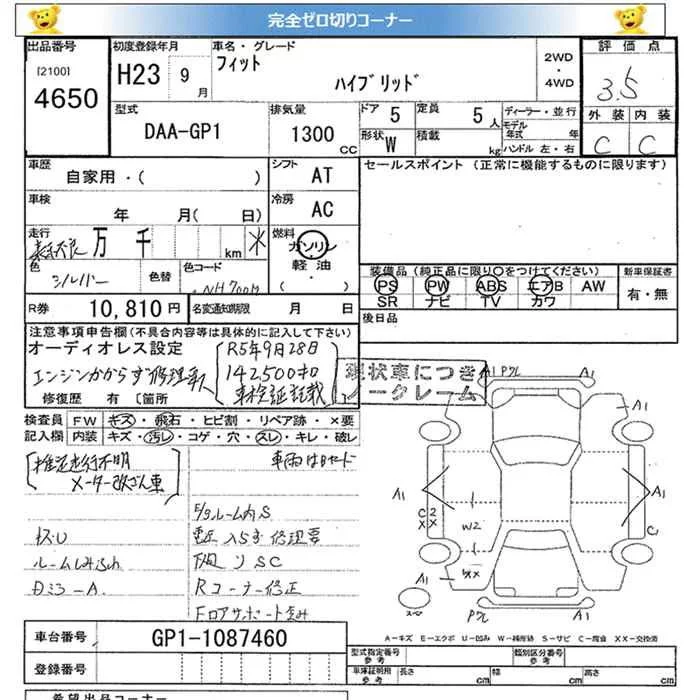 完全ゼロ切りコーナー
出品番号 初度登録年月 車名・グレード 2WD・4WD 評価点
[2100] 4650 H23 9月 フィット ハイブリッド 3.5
外装 内装
C C
型式 DAA-GP1 排気量 1300 CC ドア 5 定員 5人 ディーラー・並行
形状 W 積載 kg モデル年式 年
ハンドル 左・右
車歴 自家用・( ) シフト AT セールスポイント (正常に機能するものに限ります)
車検 年 月( 日) 冷房 AC
走行 万 千 km 燃料 ガソリン・軽油・
色 シルバー 色替 色コード NH700M
装備品 (純正品に限り〇をつけてください) 新車保証書
PS PW ABS エアB AW 有・無
SR ナビ TV カワ
R券 10,810円 名変通知期限 月 日 後日品
注意事項申告欄(不具合内容等は具体的に記入して下さい)
オーディオレス設定 R5年9月28日
エンジンかからず 142500キロ
修復歴 有 [箇所 車検証記載
現状車につき
ノークレーム
検査員 FW キズ・飛石・ヒビ割・リペア跡・×要
記入欄 内装 キズ・汚レ・コゲ・穴・スレ・キレ・破レ
推定走行不明 車両はBヤード
メーター改ざん車
ルーム内S
下廻りSC
Rコーナー修正
Fロアサポート歪み
A1 Pクレ A1
A1
A1 A1
C2 XX W2 C1
A1 XX
Pクレ A1
A-キズ E-エクボ U-凹み W-補修跡 S-サビ C-腐食 XX-交換済
車台番号 GP1-1087460
型式指定番号 参考 類別区分番号 参考
登録番号 車庫証明用 参考 長さ cm 幅 cm 高さ cm
希望出品コーナー